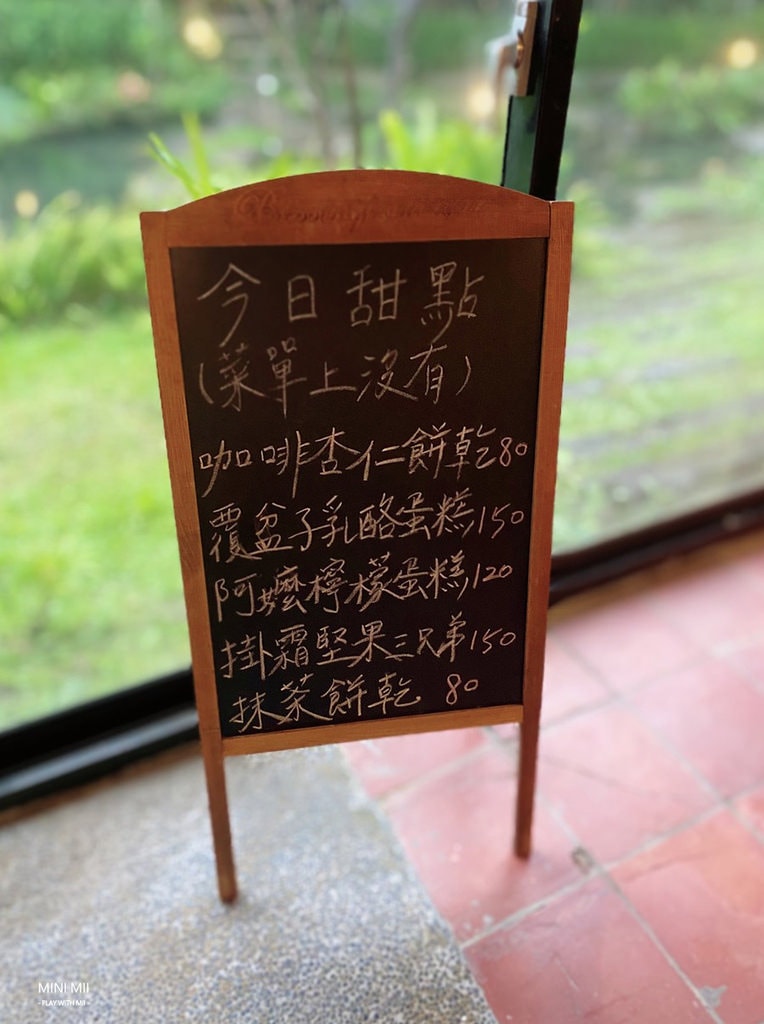 今日甜點
(菜單上沒有)
咖啡杏仁餅乾80
覆盆子乳酪蛋糕150
阿嬤檸檬蛋糕120
掛霜堅果三兄弟150
抹茶餅乾 80
MINI MII
- PLAY WITH MII -